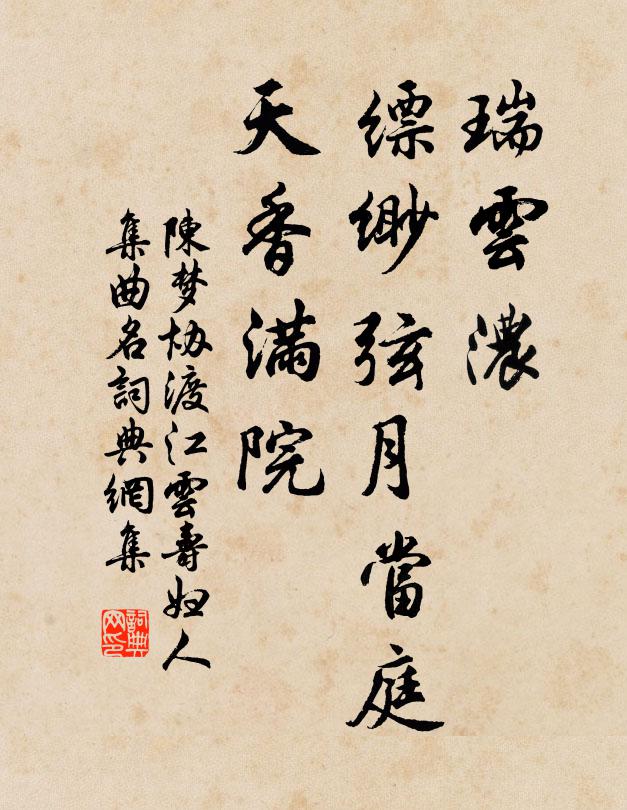 瑞雲濃
缥缈弦月當庭
天香滿院
陳梦协渡江雲壽妇人
集曲名詞典網集
詞典网印